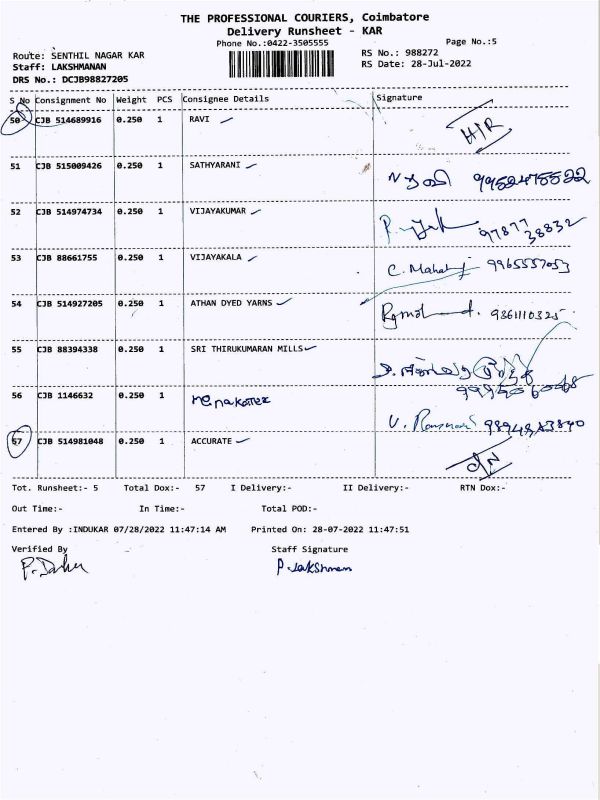 THE PROFESSIONAL COURIERS, Coimbatore
Delivery Runsheet - KAR
Phone No.:0422-3505555 Page No.:5
Route: SENTHIL NAGAR KAR RS No.: 988272
Staff: LAKSHMANAN RS Date: 28-Jul-2022
DRS No.: DCJB98827205
S No Consignment No Weight PCS Consignee Details Signature
50 CJB 514689916 0.250 1 RAVI
51 CJB 515009426 0.250 1 SATHYARANI
52 CJB 514974734 0.250 1 VIJAYAKUMAR 97877 38832
53 CJB 88661755 0.250 1 VIJAYAKALA 9965557053
54 CJB 514927205 0.250 1 ATHAN DYED YARNS 9361110325
55 CJB 88394338 0.250 1 SRI THIRUKUMARAN MILLS
56 CJB 1146632 0.250 1
57 CJB 514981048 0.250 1 ACCURATE
Tot. Runsheet:- 5 Total Dox:- 57 I Delivery:- II Delivery:- RTN Dox:-
Out Time:- In Time:- Total POD:-
Entered By :INDUKAR 07/28/2022 11:47:14 AM Printed On: 28-07-2022 11:47:51
Verified By Staff Signature
P. Lakshmanan